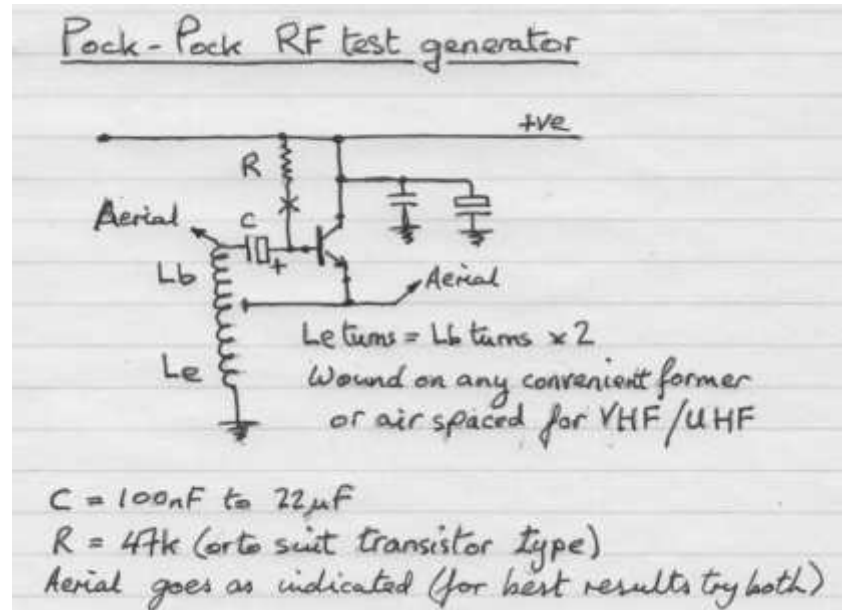 Pock-Pock RF test generator
+ve
R
Aerial
C
+
Lb
Aerial
Le turns = Lb turns x 2
Le
Wound on any convenient former
or air spaced for VHF/UHF
C = 100nF to 22µF
R = 47k (or to suit transistor type)
Aerial goes as indicated (for best results try both)